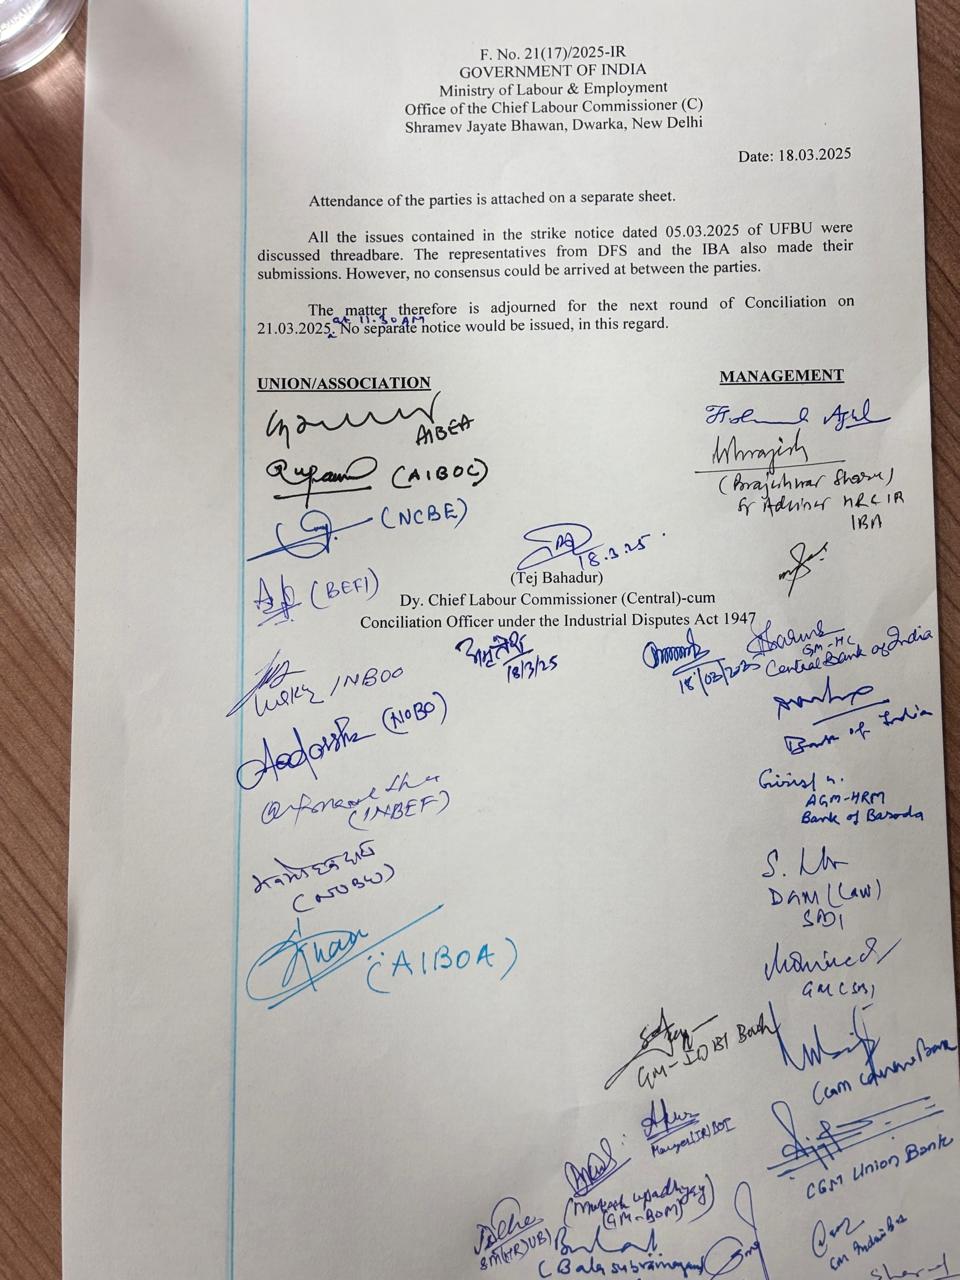 F. No. 21(17)/2025-IR
GOVERNMENT OF INDIA
Ministry of Labour & Employment
Office of the Chief Labour Commissioner (C)
Shramev Jayate Bhawan, Dwarka, New Delhi
Date: 18.03.2025
Attendance of the parties is attached on a separate sheet.
All the issues contained in the strike notice dated 05.03.2025 of UFBU were
discussed threadbare. The representatives from DFS and the IBA also made their
submissions. However, no consensus could be arrived at between the parties.
The matter therefore is adjourned for the next round of Conciliation on
at 11.30 AM
21.03.2025. No separate notice would be issued, in this regard.
UNION/ASSOCIATION
MANAGEMENT
AIBEA
(AIBOC)
(NCBE)
(BEFI)
(Brajeshwar Sharma)
Sr Adviser HR & IR
IBA
18.3.25.
(Tej Bahadur)
Dy. Chief Labour Commissioner (Central)-cum
Conciliation Officer under the Industrial Disputes Act 1947
18/3/25
18/03/2025
GM-HC
Central Bank of India
INBOC
(NOBO)
Bank of India
(INBEF)
AGM-HRM
Bank of Baroda
(NOBW)
DGM (Law)
(AIBOA)
GM-IDBI Bank
Canara Bank
CGM Union Bank
(Mukesh Upadhyay)
(GM-BOM)
(Balasubramanyam